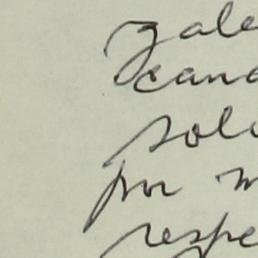 gale
cand
solu
por m
respe